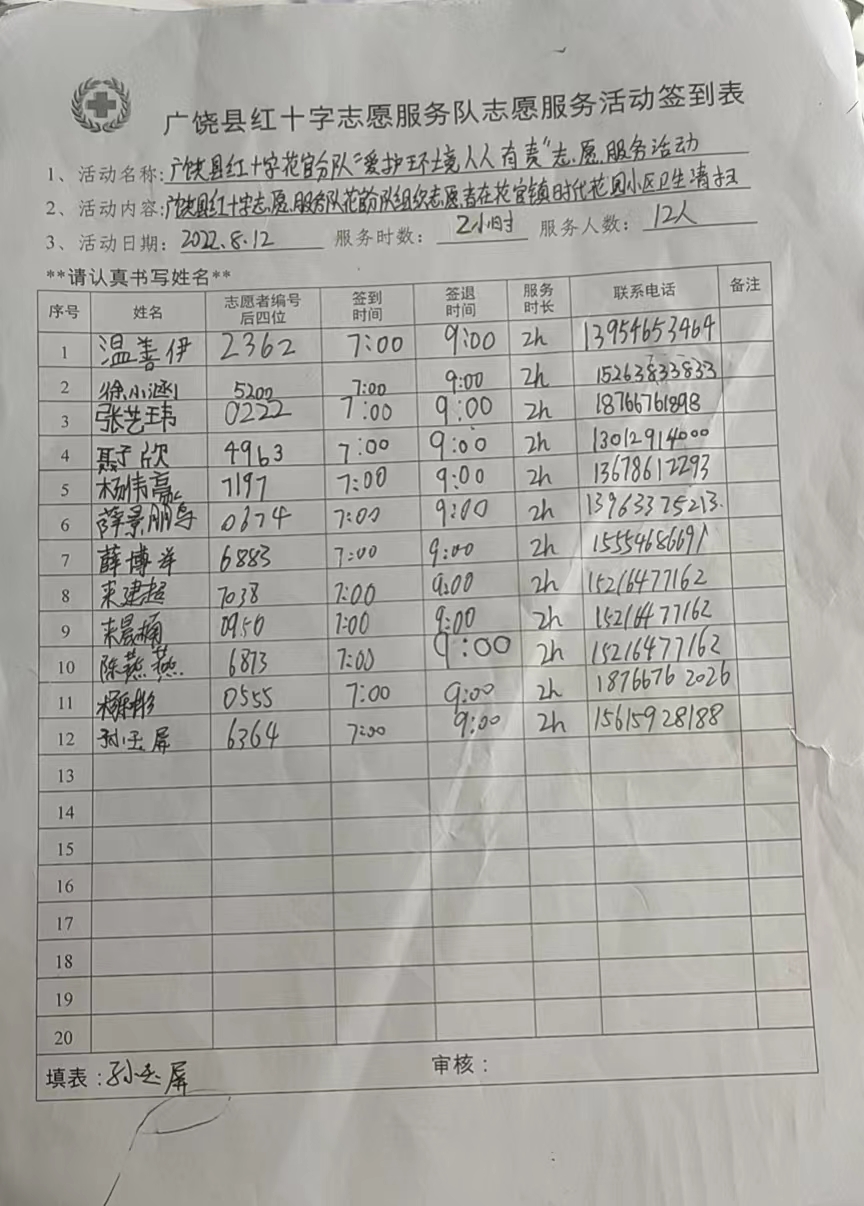 广饶县红十字志愿服务队志愿服务活动签到表
1、活动名称:广饶县红十字花官分队“爱护环境人人有责”志愿服务活动
2、活动内容:广饶县红十字志愿服务队花官分队组织志愿者在花官镇时代花园小区卫生清扫
3、活动日期: 2022.8.12 服务时数: 2小时 服务人数: 12人
**请认真书写姓名**
序号 姓名 志愿者编号后四位 签到时间 签退时间 服务时长 联系电话 备注
1 温善伊 2362 7:00 9:00 2h 13954653464
2 徐小涵 5200 7:00 9:00 2h 15263833833
3 张艺玮 0222 7:00 9:00 2h 18766761898
4 聂子欣 4963 7:00 9:00 2h 13012914000
5 杨伟豪 7197 7:00 9:00 2h 13678612293
6 薛景鹏 0374 7:00 9:00 2h 13963375213
7 薛博洋 6883 7:00 9:00 2h 15554686691
8 来建超 7038 7:00 9:00 2h 15216477162
9 来晨楠 0950 7:00 9:00 2h 15216477162
10 陈燕燕 6873 7:00 9:00 2h 15216477162
11 0555 7:00 9:00 2h 18766762026
12 孙玉屏 6364 7:00 9:00 2h 15615928188
13
14
15
16
17
18
19
20
填表:孙玉屏 审核: